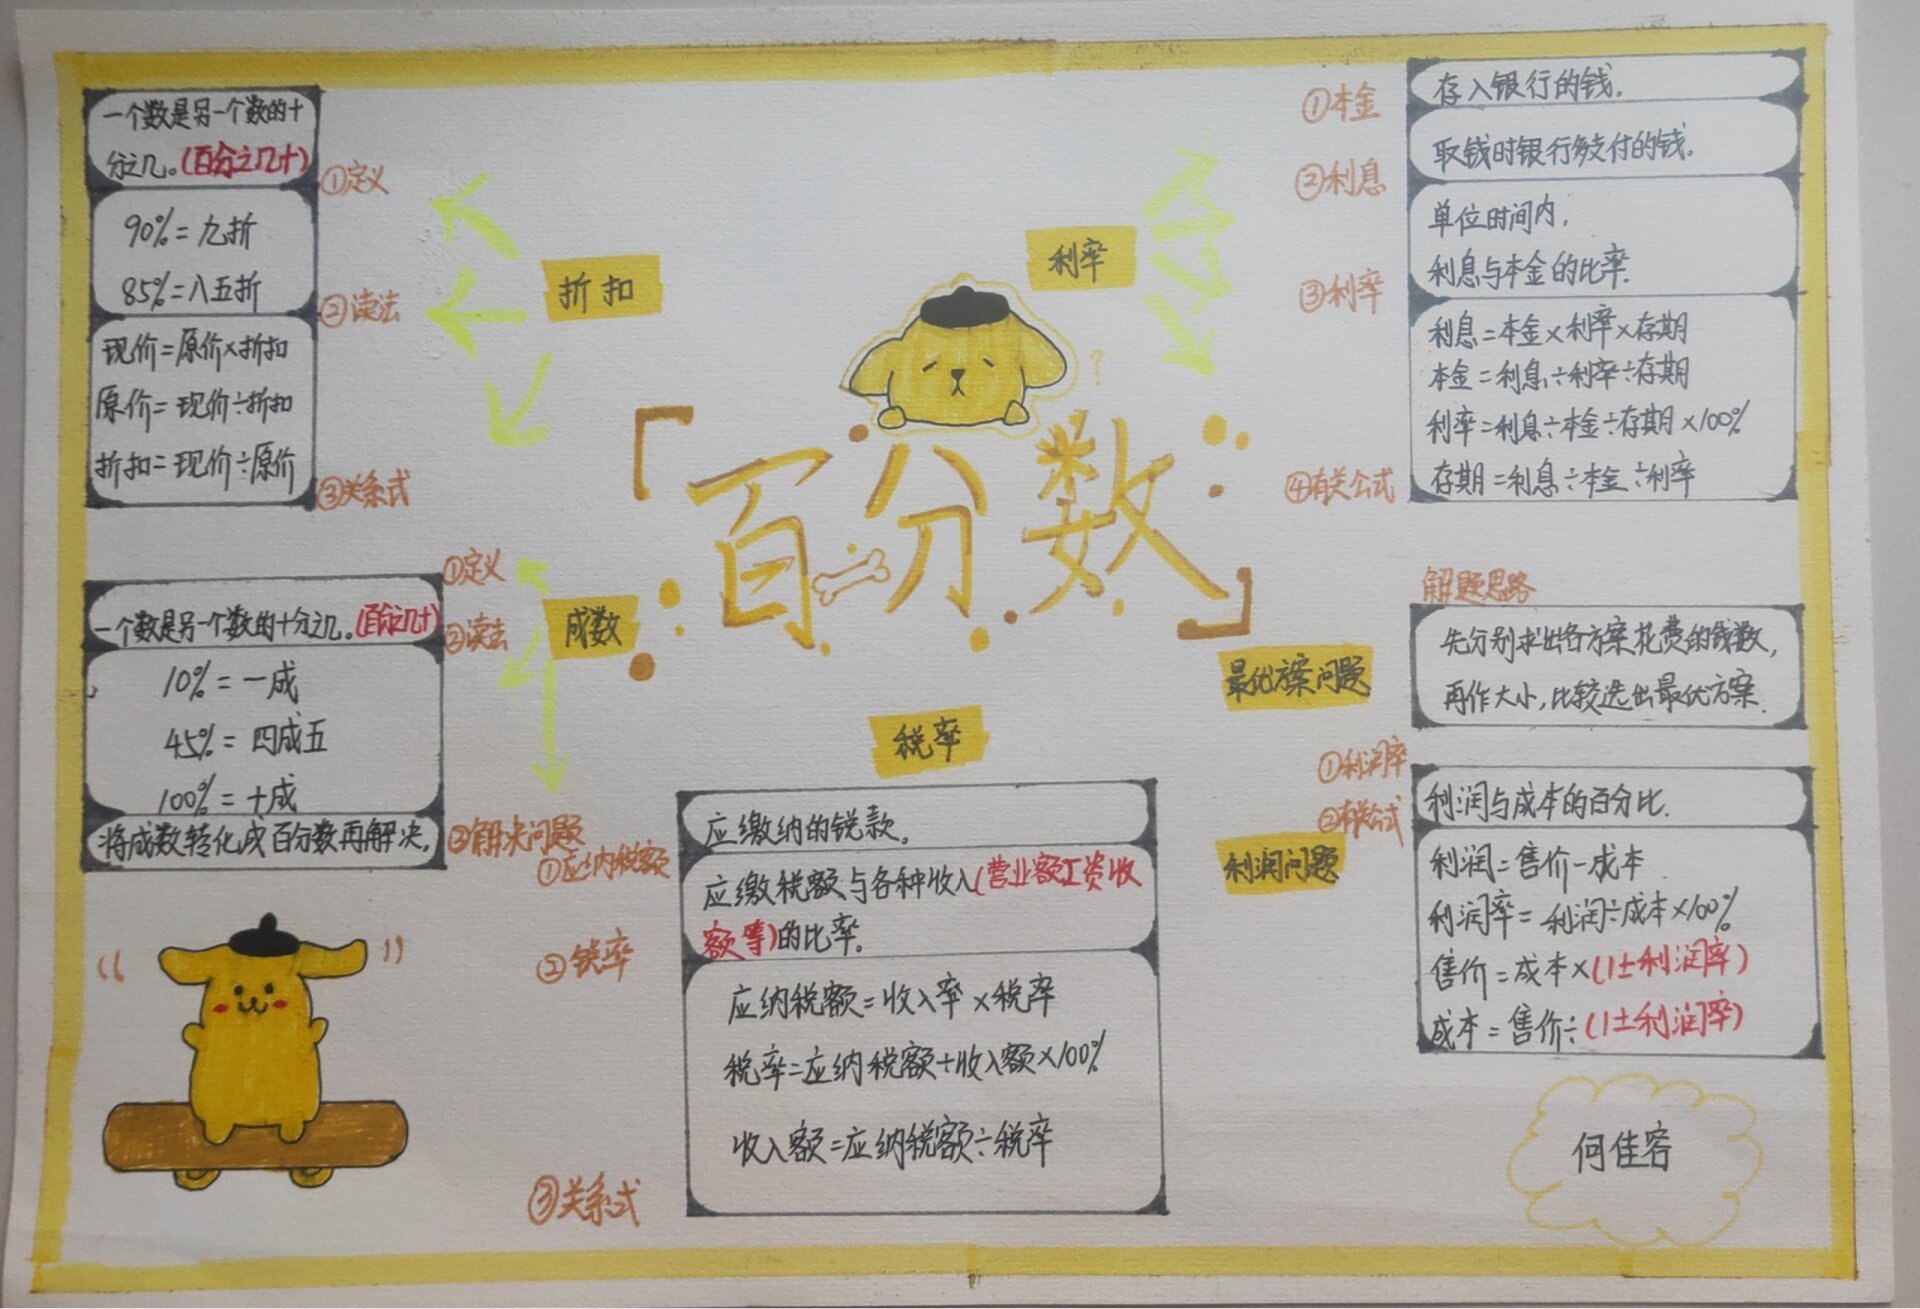 「百分数」
折扣
一个数是另一个数的十
分之几。(百分之几十)
①定义
90%=九折
85%=八五折
②读法
现价=原价×折扣
原价=现价÷折扣
折扣=现价÷原价
③关系式
成数
①定义
一个数是另一个数的十分之几。(百分之几十)
②读法
10%=一成
45%=四成五
100%=十成
将成数转化成百分数再解决。
③解决问题
税率
①应纳税额
应缴纳的锐款。
②锐率
应缴税额与各种收入(营业额工资收
额等)的比率。
应纳税额=收入率×税率
税率=应纳税额÷收入额×100%
收入额=应纳税额÷税率
③关系式
利率
①本金
存入银行的钱.
②利息
取钱时银行多支付的钱.
③利率
单位时间内,
利息与本金的比率.
④有关公式
利息=本金×利率×存期
本金=利息÷利率÷存期
利率=利息÷本金÷存期×100%
存期=利息÷本金÷利率
最优方案问题
解题思路
先分别求出各方案花费的钱数,
再作大小,比较选出最优方案.
利润问题
①利润率
利润与成本的百分比.
②有关公式
利润=售价-成本
利润率=利润÷成本×100%
售价=成本×(1±利润率)
成本=售价÷(1±利润率)
何佳容